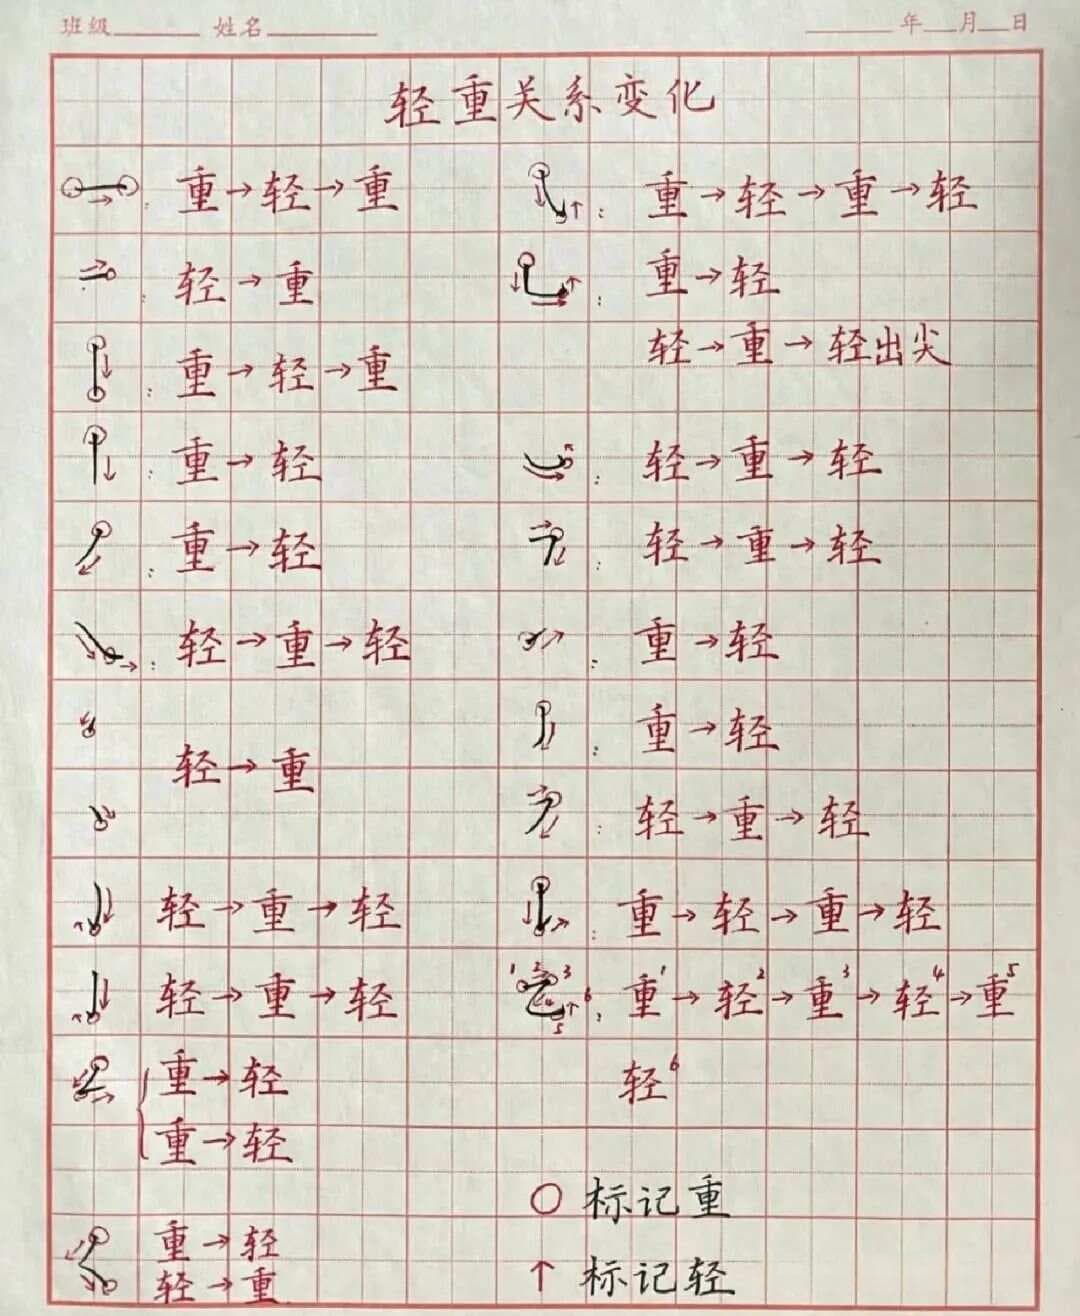 班级 姓名 年 月 日
轻重关系变化
: 重→轻→重
: 轻→重
: 重→轻→重
: 重→轻
: 重→轻
: 轻→重→轻
轻→重
轻→重→轻
轻→重→轻
重→轻
重→轻
重→轻
轻→重
: 重→轻→重→轻
: 重→轻
轻→重→轻出尖
: 轻→重→轻
: 轻→重→轻
: 重→轻
: 重→轻
: 轻→重→轻
: 重→轻→重→轻
1 2 3 5 6 : 重1→轻2→重3→轻4→重5
轻6
○ 标记重
↑ 标记轻